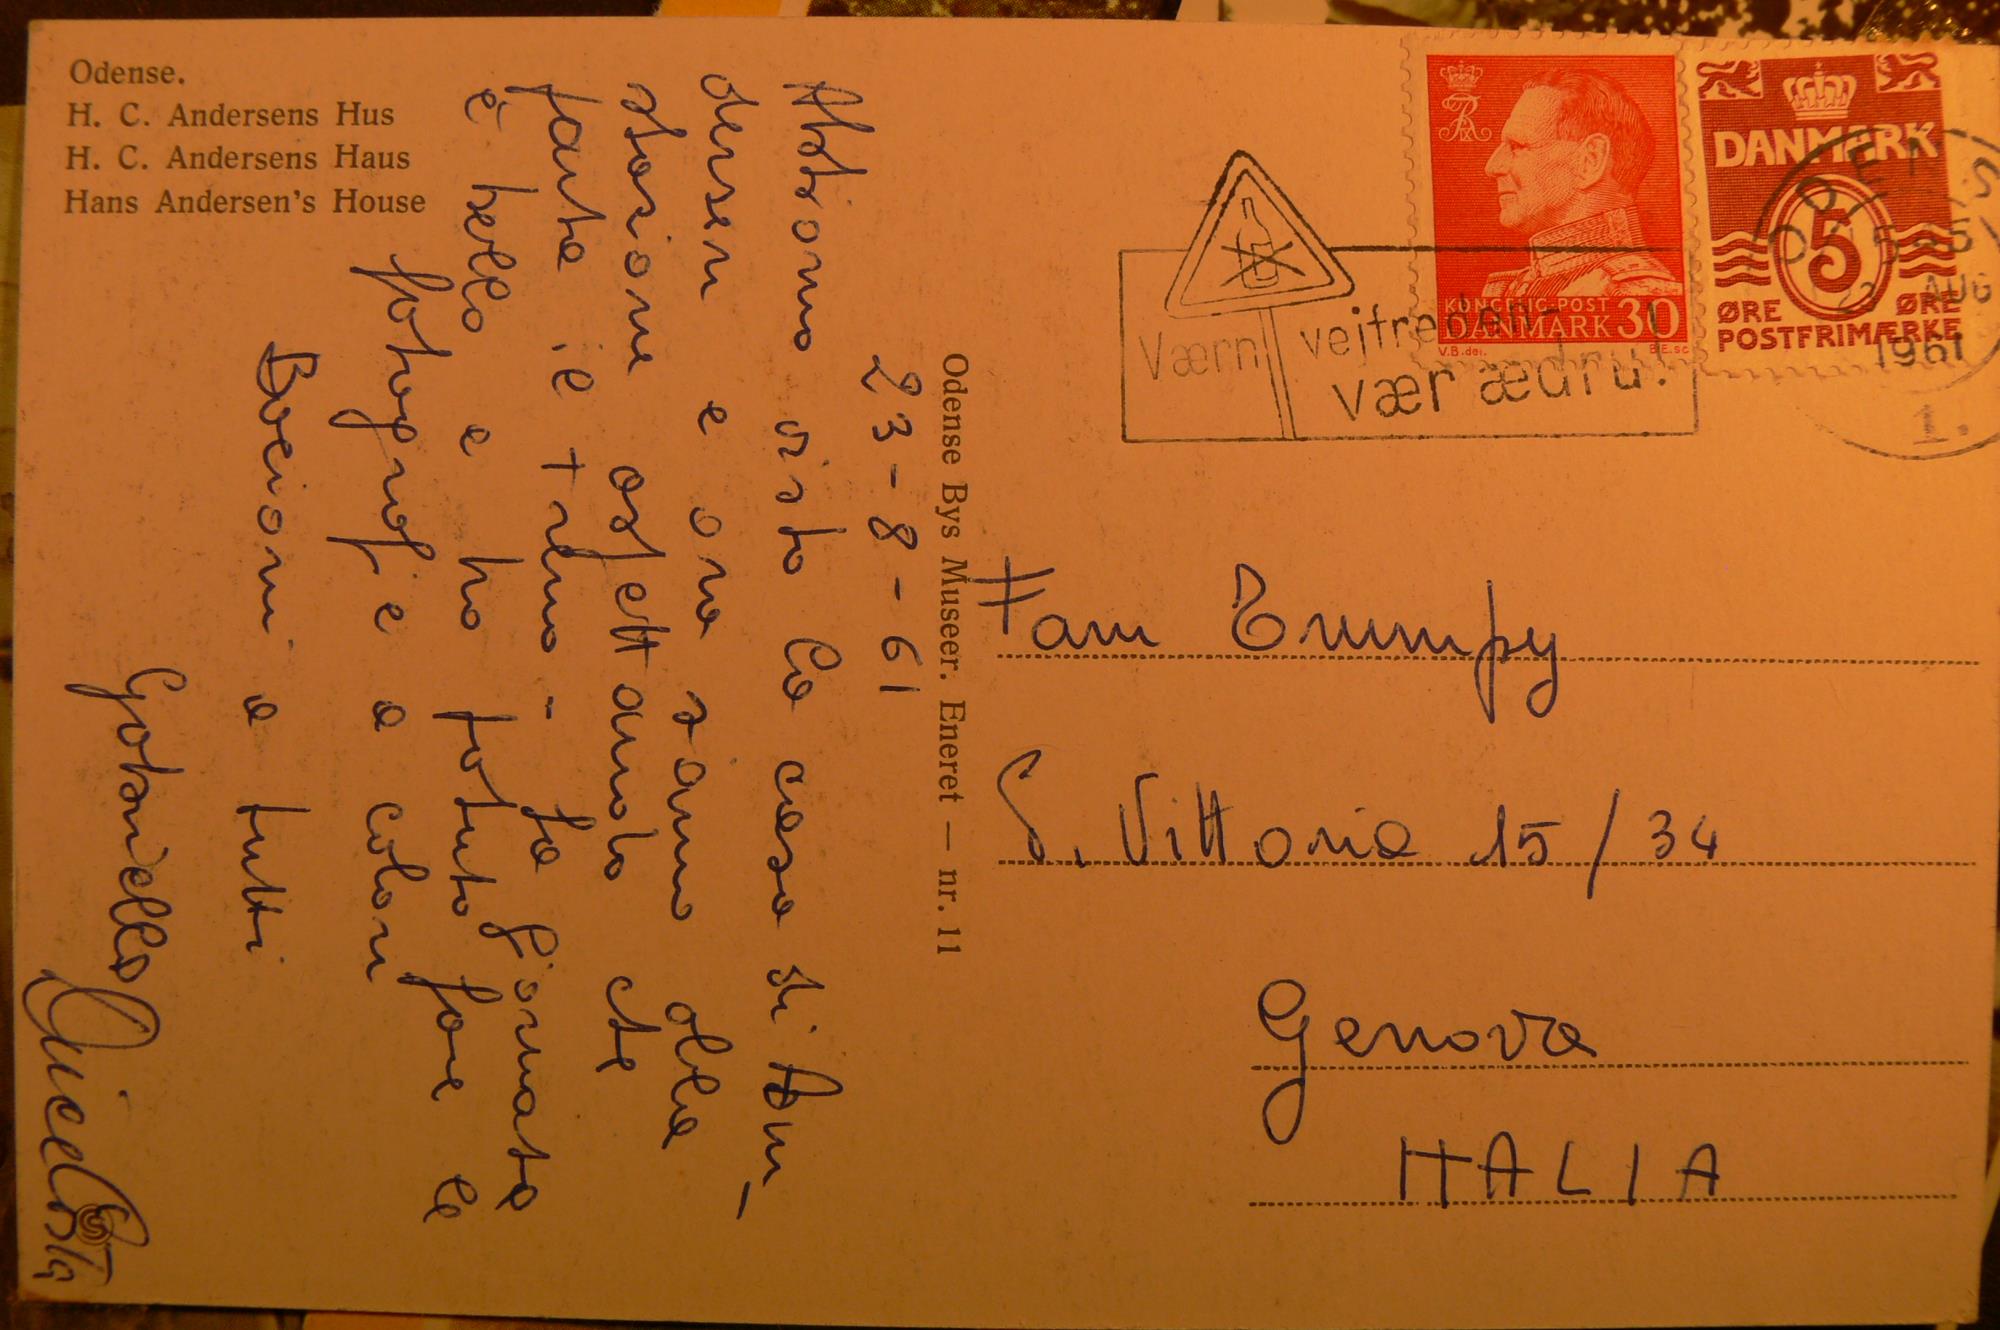 Odense.
H. C. Andersens Hus
H. C. Andersens Haus
Hans Andersen's House
23-8-61
Abbiamo visto la casa di An-
dersen e ora siamo alla
stazione aspettando che
parta il treno - la giornata
è bella e ho potuto fare le
fotografie a colori
Bacioni a tutti
Odense Bys Museer. Eneret — nr. 11
Værn vejfreden-
vær ædru!
KONGELIG-POST
DANMARK 30
V.B. del. B.E. sc
DANMARK
5
ØRE ØRE
POSTFRIMÆRKE
ODENSE
23 AUG
1961
1.
Fam Trumpy
S. Vittoria 15/34
Genova
ITALIA